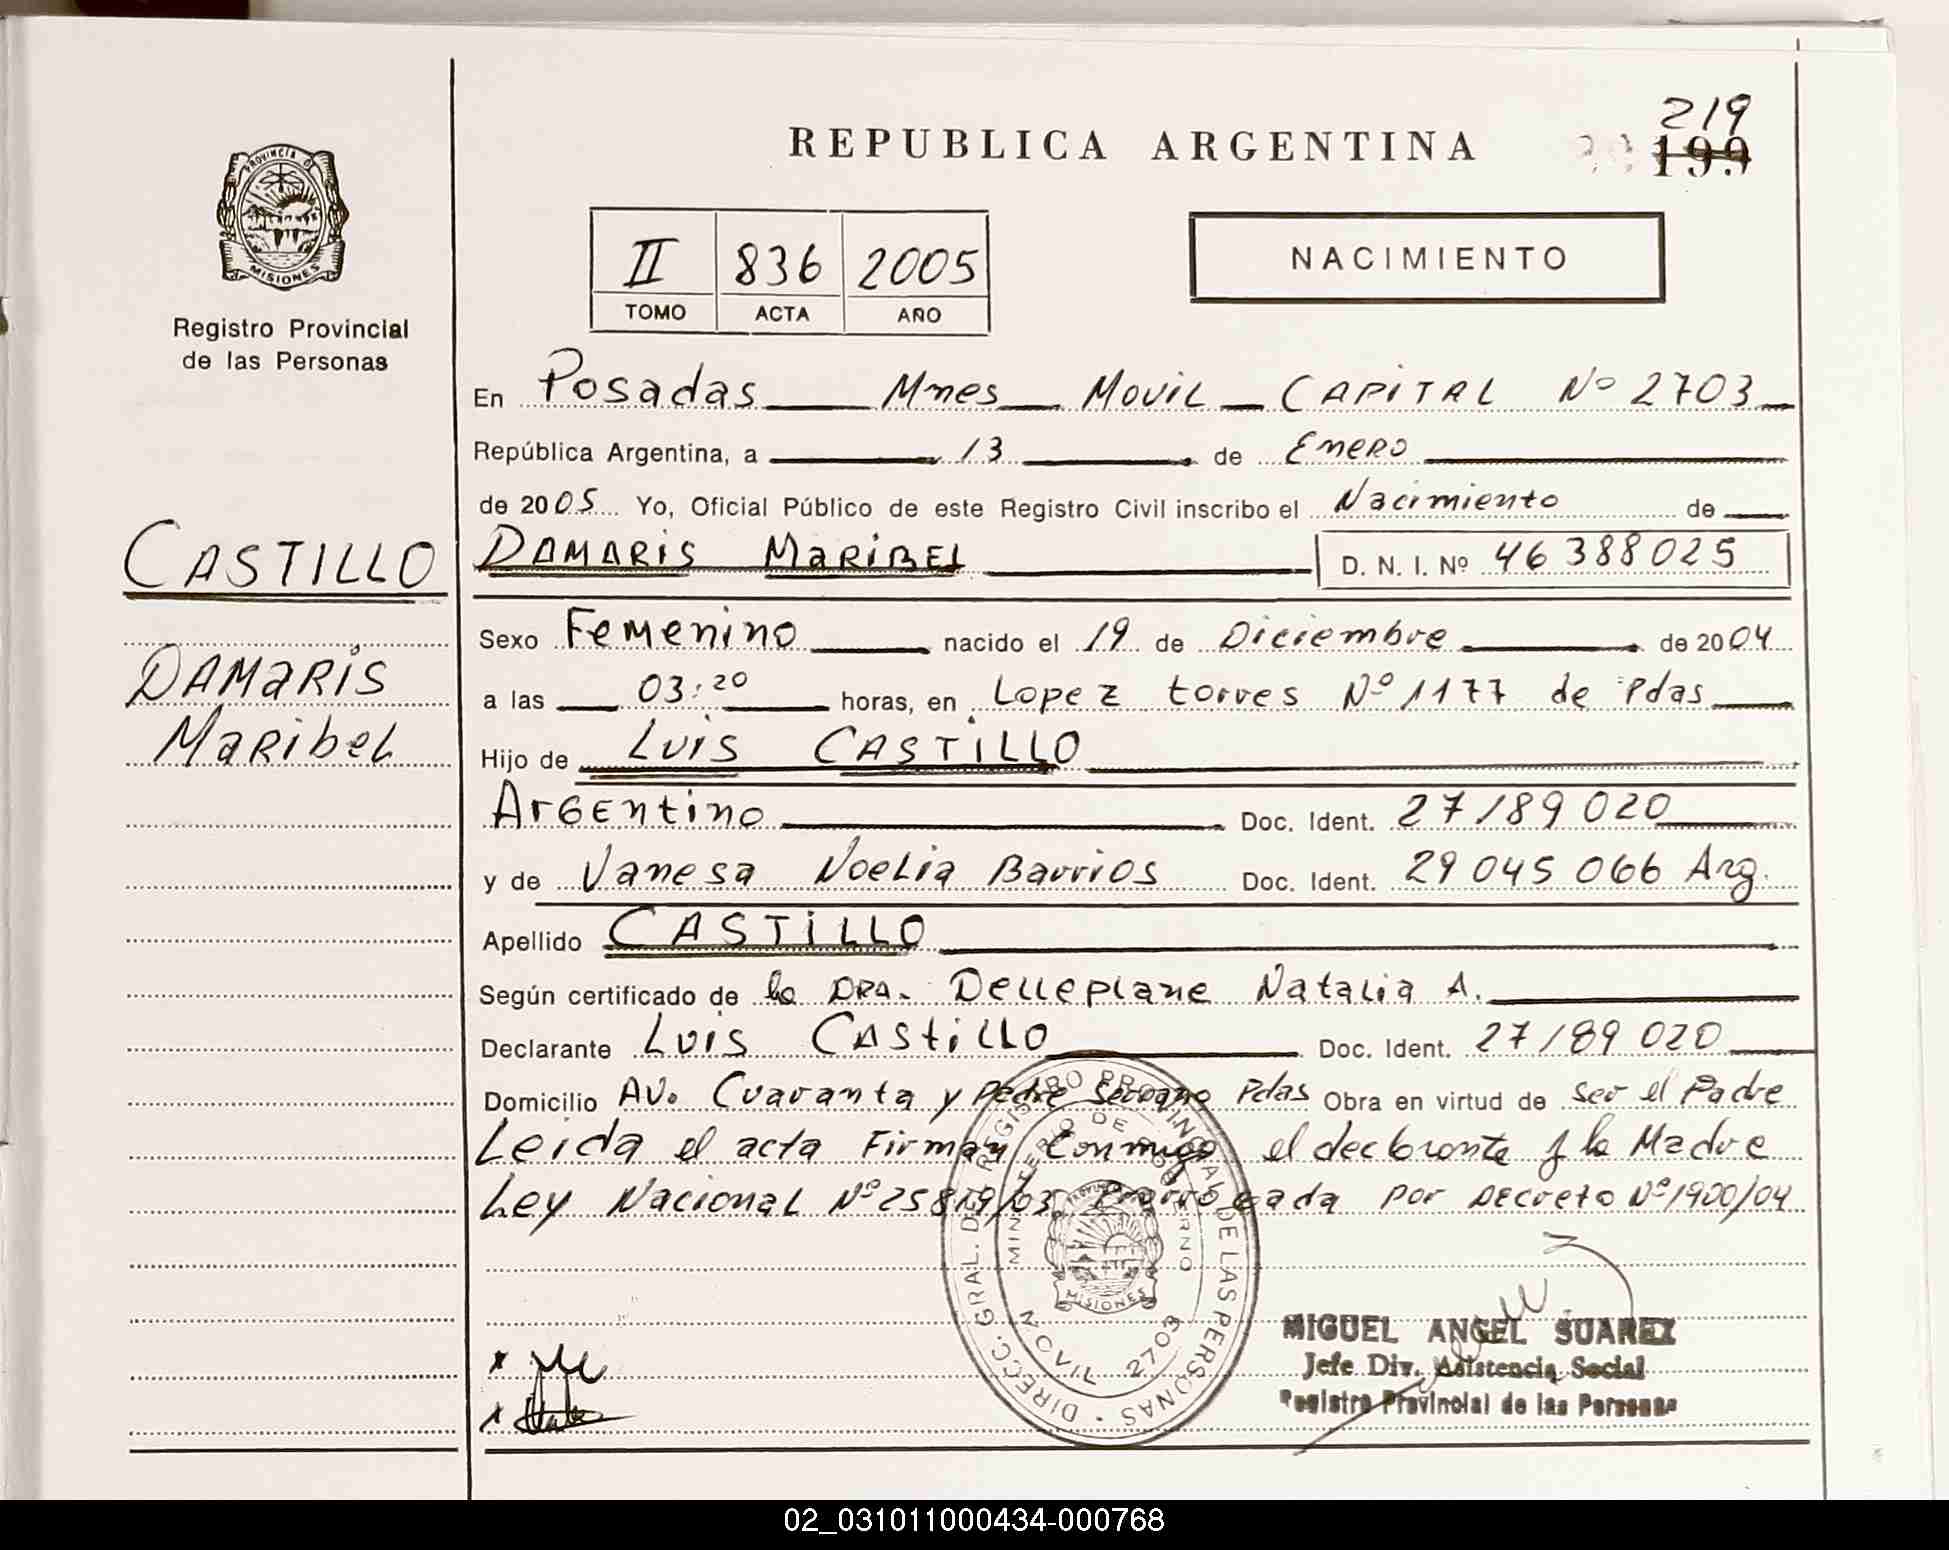 219
REPUBLICA ARGENTINA
199
PROVINCIA DE
MISIONES
Registro Provincial
de las Personas
II 836 2005
TOMO ACTA AÑO
NACIMIENTO
En Posadas Mnes Movil CAPITAL Nº 2703
República Argentina, a 13 de Enero
de 2005 Yo, Oficial Público de este Registro Civil inscribo el Nacimiento de
CASTILLO
DAMARIS MARIBEL D. N. I. Nº 46 388 025
Sexo Femenino nacido el 19 de Diciembre de 2004
DAMARIS
a las 03:20 horas, en Lopez torres Nº 1177 de Pdas
Maribel
Hijo de Luis CASTILLO
Argentino Doc. Ident. 27 189 020
y de Vanesa Noelia Barrios Doc. Ident. 29 045 066 Arg.
Apellido CASTILLO
Según certificado de la DRA. Delleplane Natalia A.
Declarante Luis Castillo Doc. Ident. 27 189 020
Domicilio AV. Cuaranta y Pedre Serrano Pdas Obra en virtud de ser el Padre
Leida el acta Firman Conmigo el declarante y la Madre
Ley Nacional Nº 25819/03 Prorrogada por Decreto Nº 1900/04
DIRECC. GRAL. DEL REGISTRO PROVINCIAL DE LAS PERSONAS
MINISTERIO DE GOBIERNO
MISIONES
MOVIL 2703
MIGUEL ANGEL SUAREZ
Jefe Div. Asistencia Social
Registro Provincial de las Personas
02_031011000434-000768